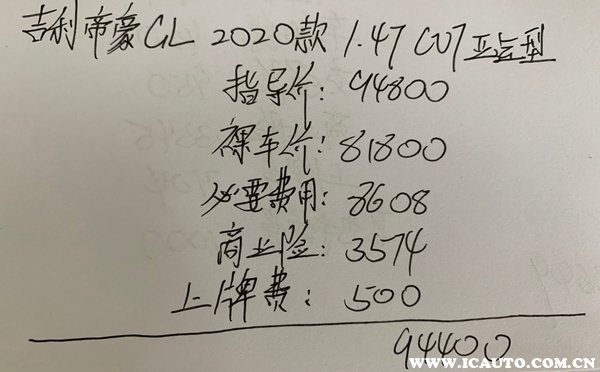 吉利帝豪GL 2020款 1.4T CVT 亚运型
指导价: 94800
裸车价: 81800
必要费用: 8608
商业险: 3574
上牌费: 500
94400
WWW.ICAUTO.COM.CN